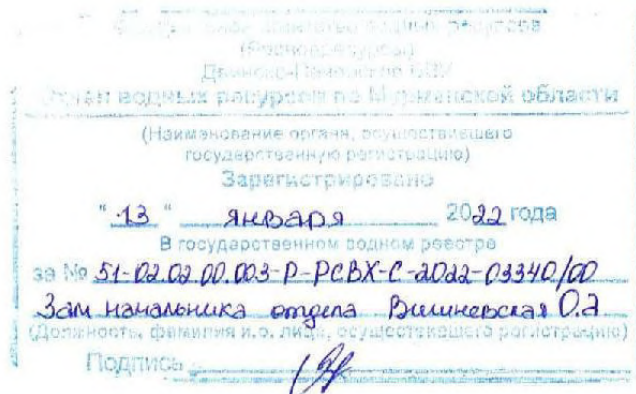 Федеральное агентство водных ресурсов
(Росводресурсы)
Двинско-Печорское БВУ
Отдел водных ресурсов по Мурманской области
(Наименование органа, осуществившего
государственную регистрацию)
Зарегистрировано
" 13 " января 2022 года
В государственном водном реестре
за № 51-02.02.00.003-Р-РСВХ-С-2022-03340/00
Зам начальника отдела Вишневская О.А
(Должность, фамилия и.о. лица, осуществившего регистрацию)
Подпись